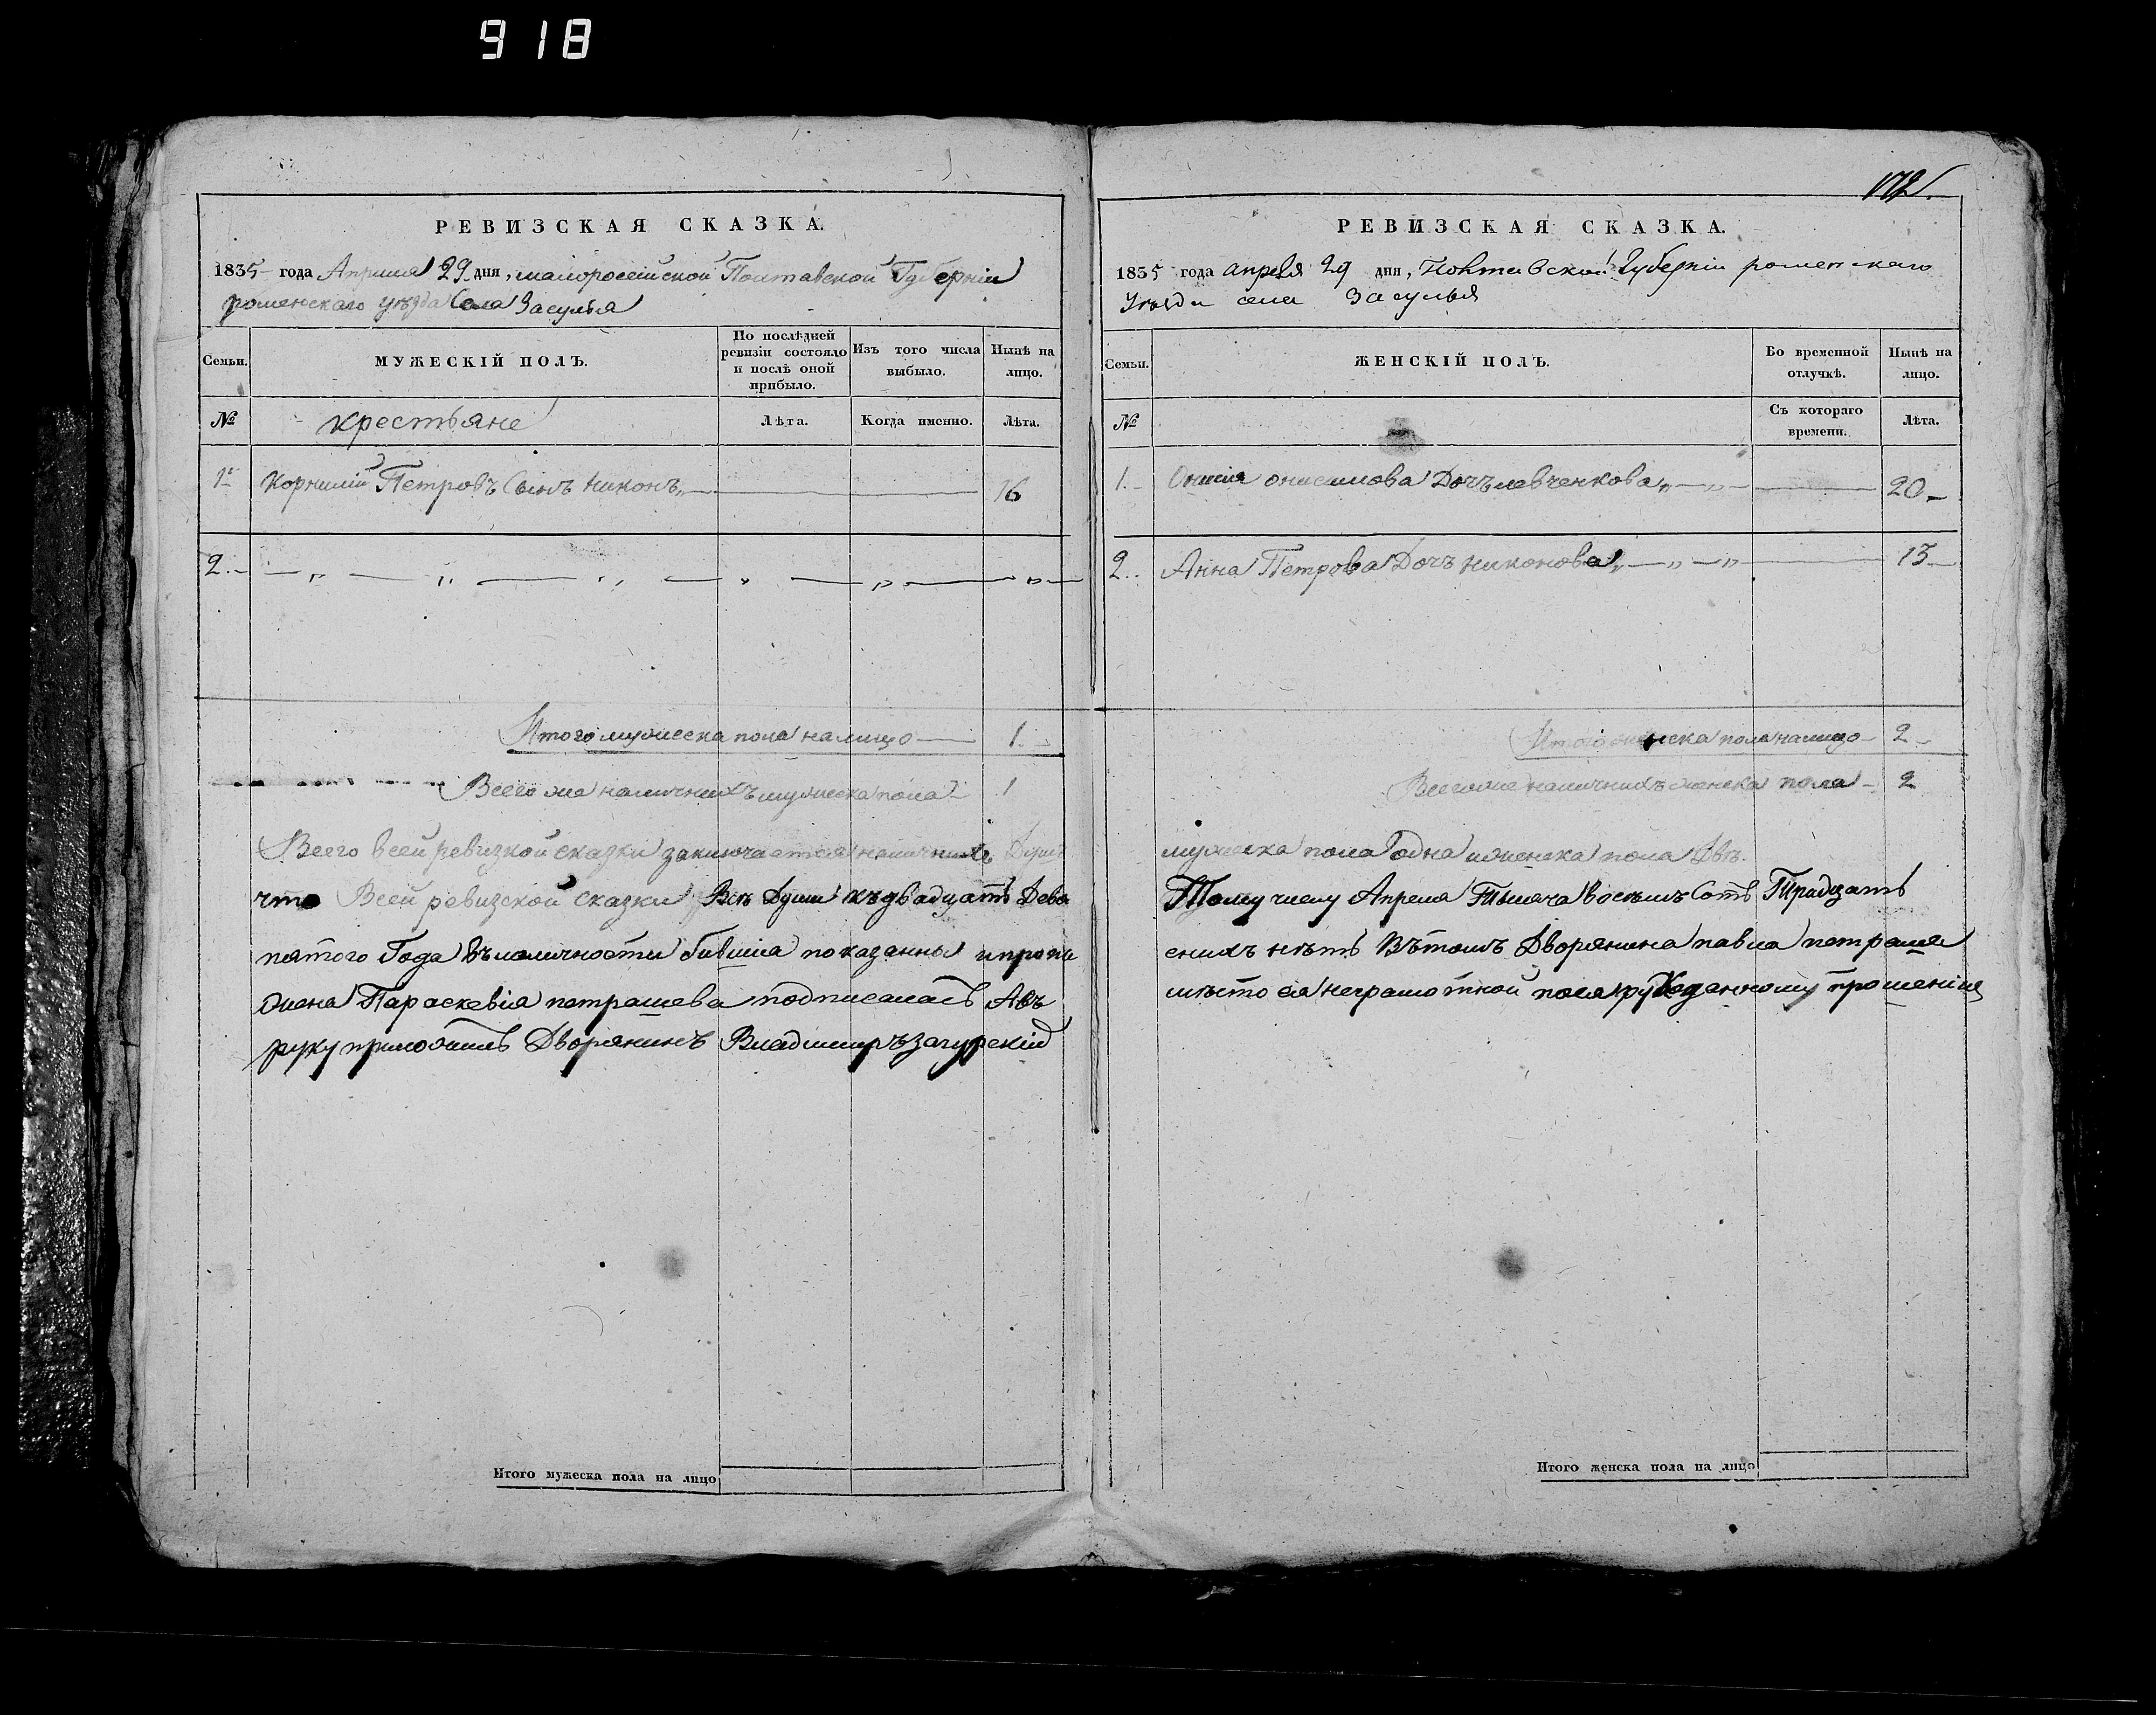 918
РЕВИЗСКАЯ СКАЗКА.
1835 года Априля 29 дня, малороссійской Полтавской Губерніи
роменскаго уѣзда Села Засулья
Семьи.
МУЖЕСКІЙ ПОЛЪ.
По послѣдней ревизіи состояло и послѣ оной прибыло.
Изъ того числа выбыло.
Нынѣ на лицо.
№
крестьяне
Лѣта.
Когда именно.
Лѣта.
1 Корнилій Петровъ Сынъ Никонъ 16
2
Итого мужеска пола налицо 1
Всего же наличнихъ мужеска пола 1
Всего всей ревизкой сказки заключается наличнихъ Душъ
что Всей ревизской Сказки Всѣ Души къ двадцать Девя
пятого Года въ наличности бившіа показанны и пропи
жена Параскевіа петрашева подписалась А въ
руку приложилъ Дворянинъ Владимиръ загурскій
Итого мужеска пола на лицо
172
РЕВИЗСКАЯ СКАЗКА.
1835 года апреля 29 дня, Полтавской Губерніи роменскаго
Уѣзда села Засулья
Семьи.
ЖЕНСКІЙ ПОЛЪ.
Во временной отлучкѣ.
Нынѣ на лицо.
№
Съ котораго времени.
Лѣта.
1. онисимова Дочъ левченкова 20
2. Анна Петрова Дочъ Никонова 13
Итого женска пола налицо 2
Всего же наличнихъ женска пола 2
мужеска пола одна и женска пола Двѣ.
Тому числу Апреля Тысяча восемъ Сотъ Традцать
енихъ нѣтъ Вътомъ Дворянина павла петраше
мѣсто ея неграмотной по ея рукоданному прошенію
Итого женска пола на лицо